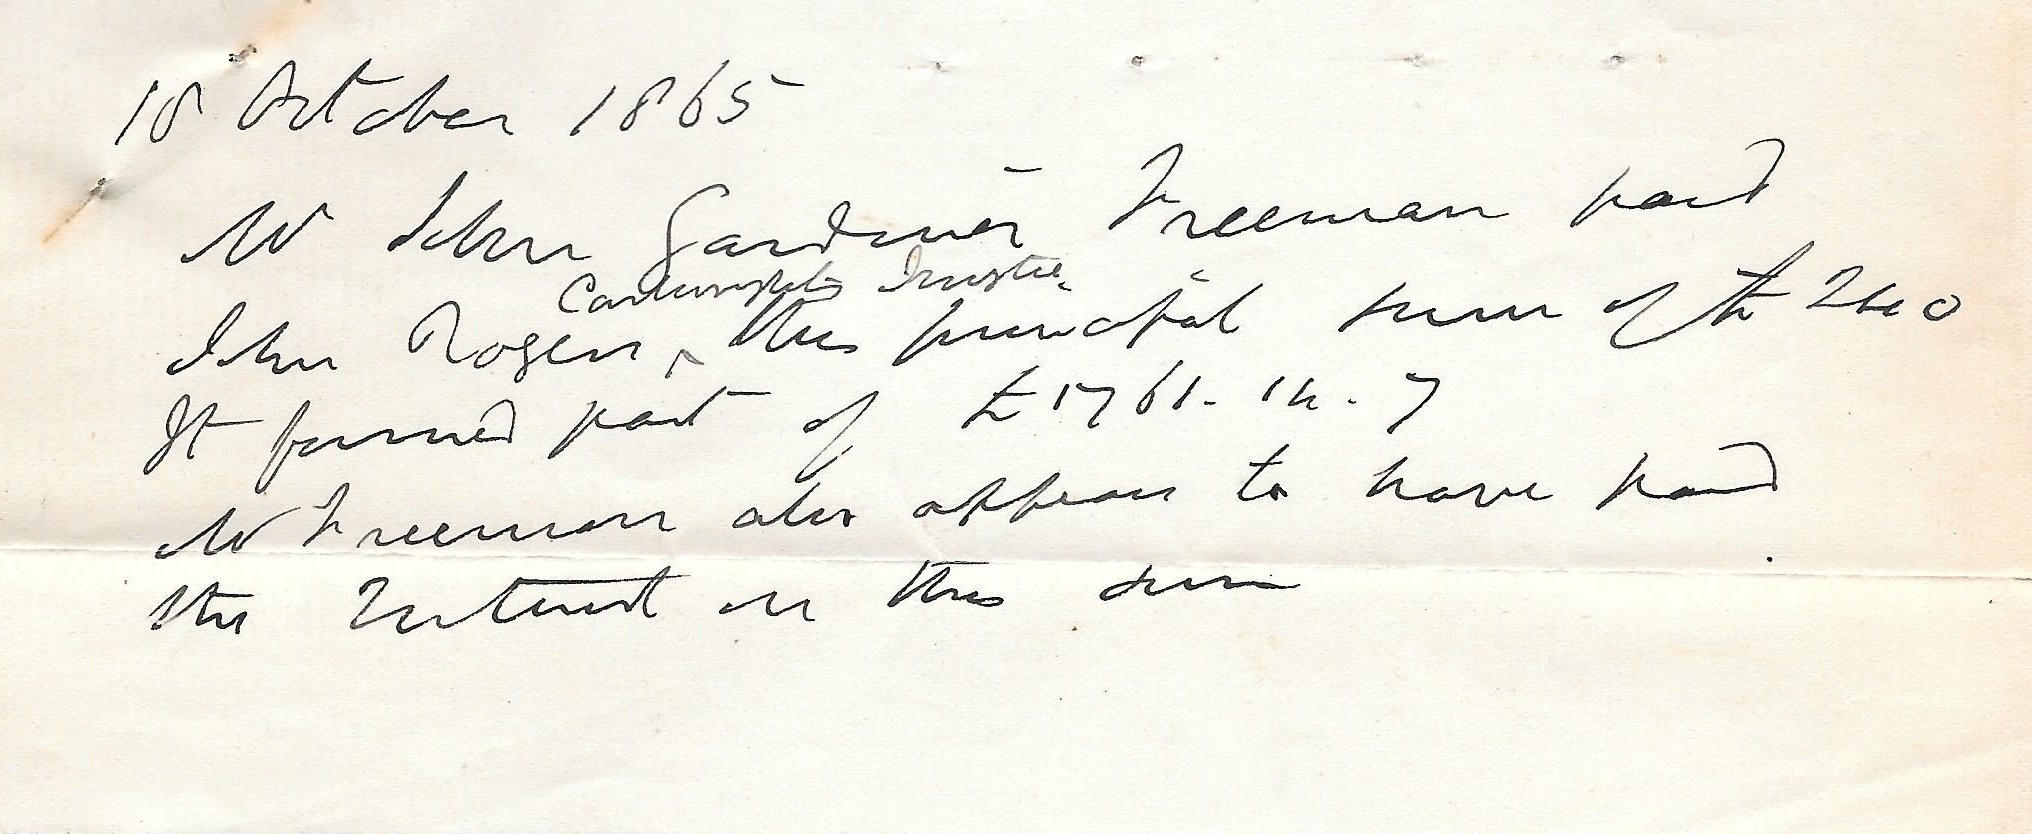 18 October 1865
Mr John Gardiner Freeman paid
Cartwright's Trustee
John Rogers ^ this principal sum of £240
It formed part of £1761-14-7
Mr Freeman also appears to have paid
the Interest on this sum